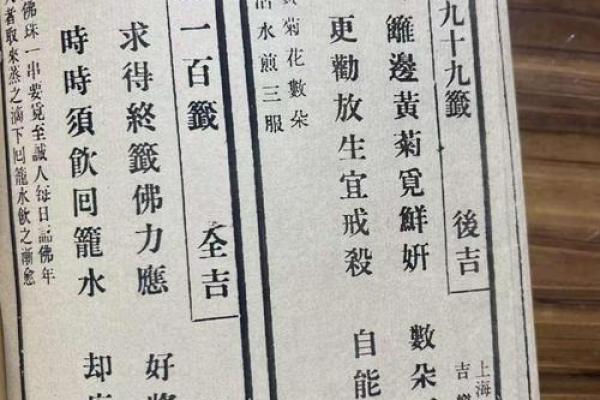 九十九籤 後吉
上海
吉
籬邊黃菊覓鮮妍 數朵
更勸放生宜戒殺 自能
菊花數朵
水煎三服
一百籤 全吉
求得終籤佛力應 好
時時須飲回籠水 却
佛珠一串要覓至誠人每日話佛年
者取來蒸之滴下回籠水飲之漸愈